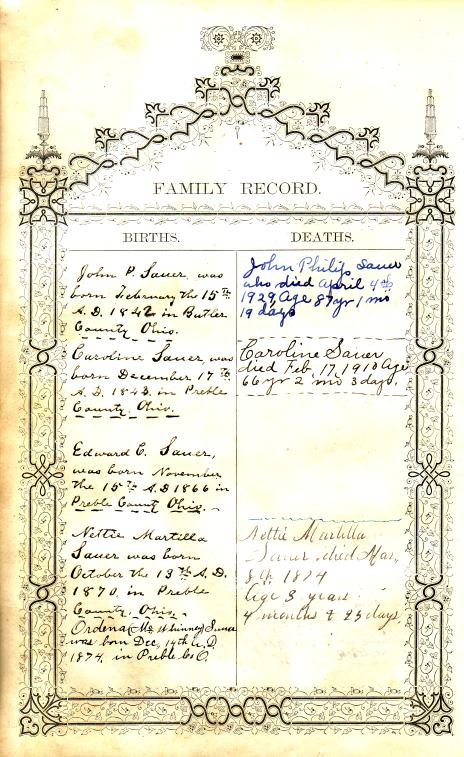 FAMILY RECORD.
BIRTHS.
John P. Sauer, was
born February the 15th
A.D. 1842 in Butler
County Ohio.
Caroline Sauer, was
born December 17th
A.D. 1843. in Preble
County. Ohio.
Edward C. Sauer,
was born November
the 15th A.D 1866 in
Preble Count Ohio.
Nettie Martilla
Sauer was born
October the 13th A.D.
1870. in Preble
County. Ohio.
Ordena (Mc Whinney) Sauer
was born Dec. 14th A.D.
1874. in Preble Co O.
DEATHS.
John Philip Sauer
who died April 4th
1929, Age 87 yr 1 mo
19 days
Caroline Sauer
died Feb. 17, 1910 Age
66 yr 2 mo 3 days.
Nettie Martilla
Sauer died Mar.
8th 1874
Age 3 years
4 months & 23 days